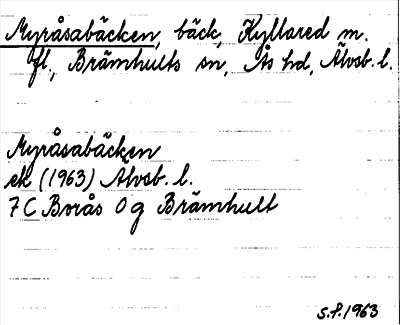 Myråsabäcken, bäck, Kyllared m.
fl., Brämhults sn, Ås hd, Älvsb. l.
Myråsabäcken
ek (1963) Älvsb. l.
7 C Borås 0 g Brämhult
S.P. 1963